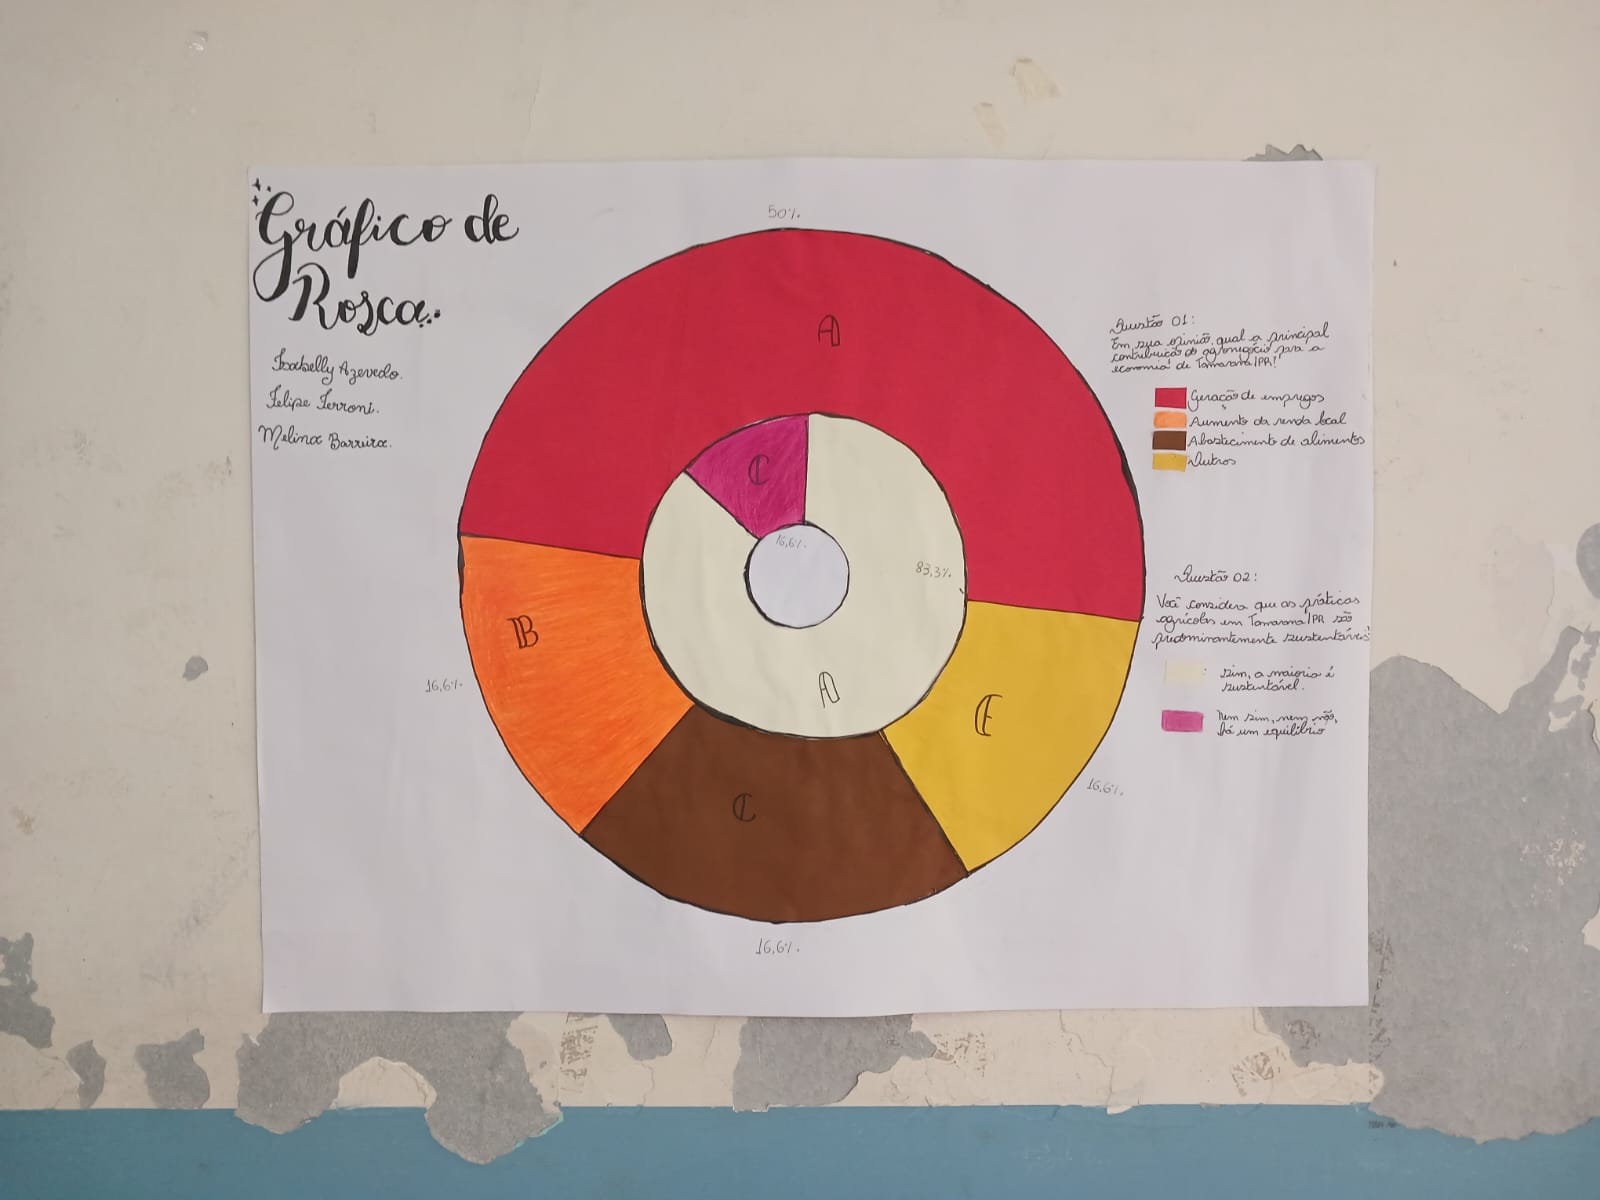 Gráfico de
Rosca
Isabelly Azevedo.
Felipe Ferroni.
Melina Barreira.
50%
A
B
16,6%
C
16,6%
E
16,6%
C
16,6%
83,3%
A
Questão 01:
Em sua opinião, qual a principal
contribuição do agronegócio para a
economia de Tamarana/PR?
Geração de empregos
Aumento da renda local
Abastecimento de alimentos
Outros
Questão 02:
Você considera que as práticas
agrícolas em Tamarana/PR são
predominantemente sustentáveis?
Sim, a maioria é
sustentável.
Nem sim, nem não,
há um equilíbrio